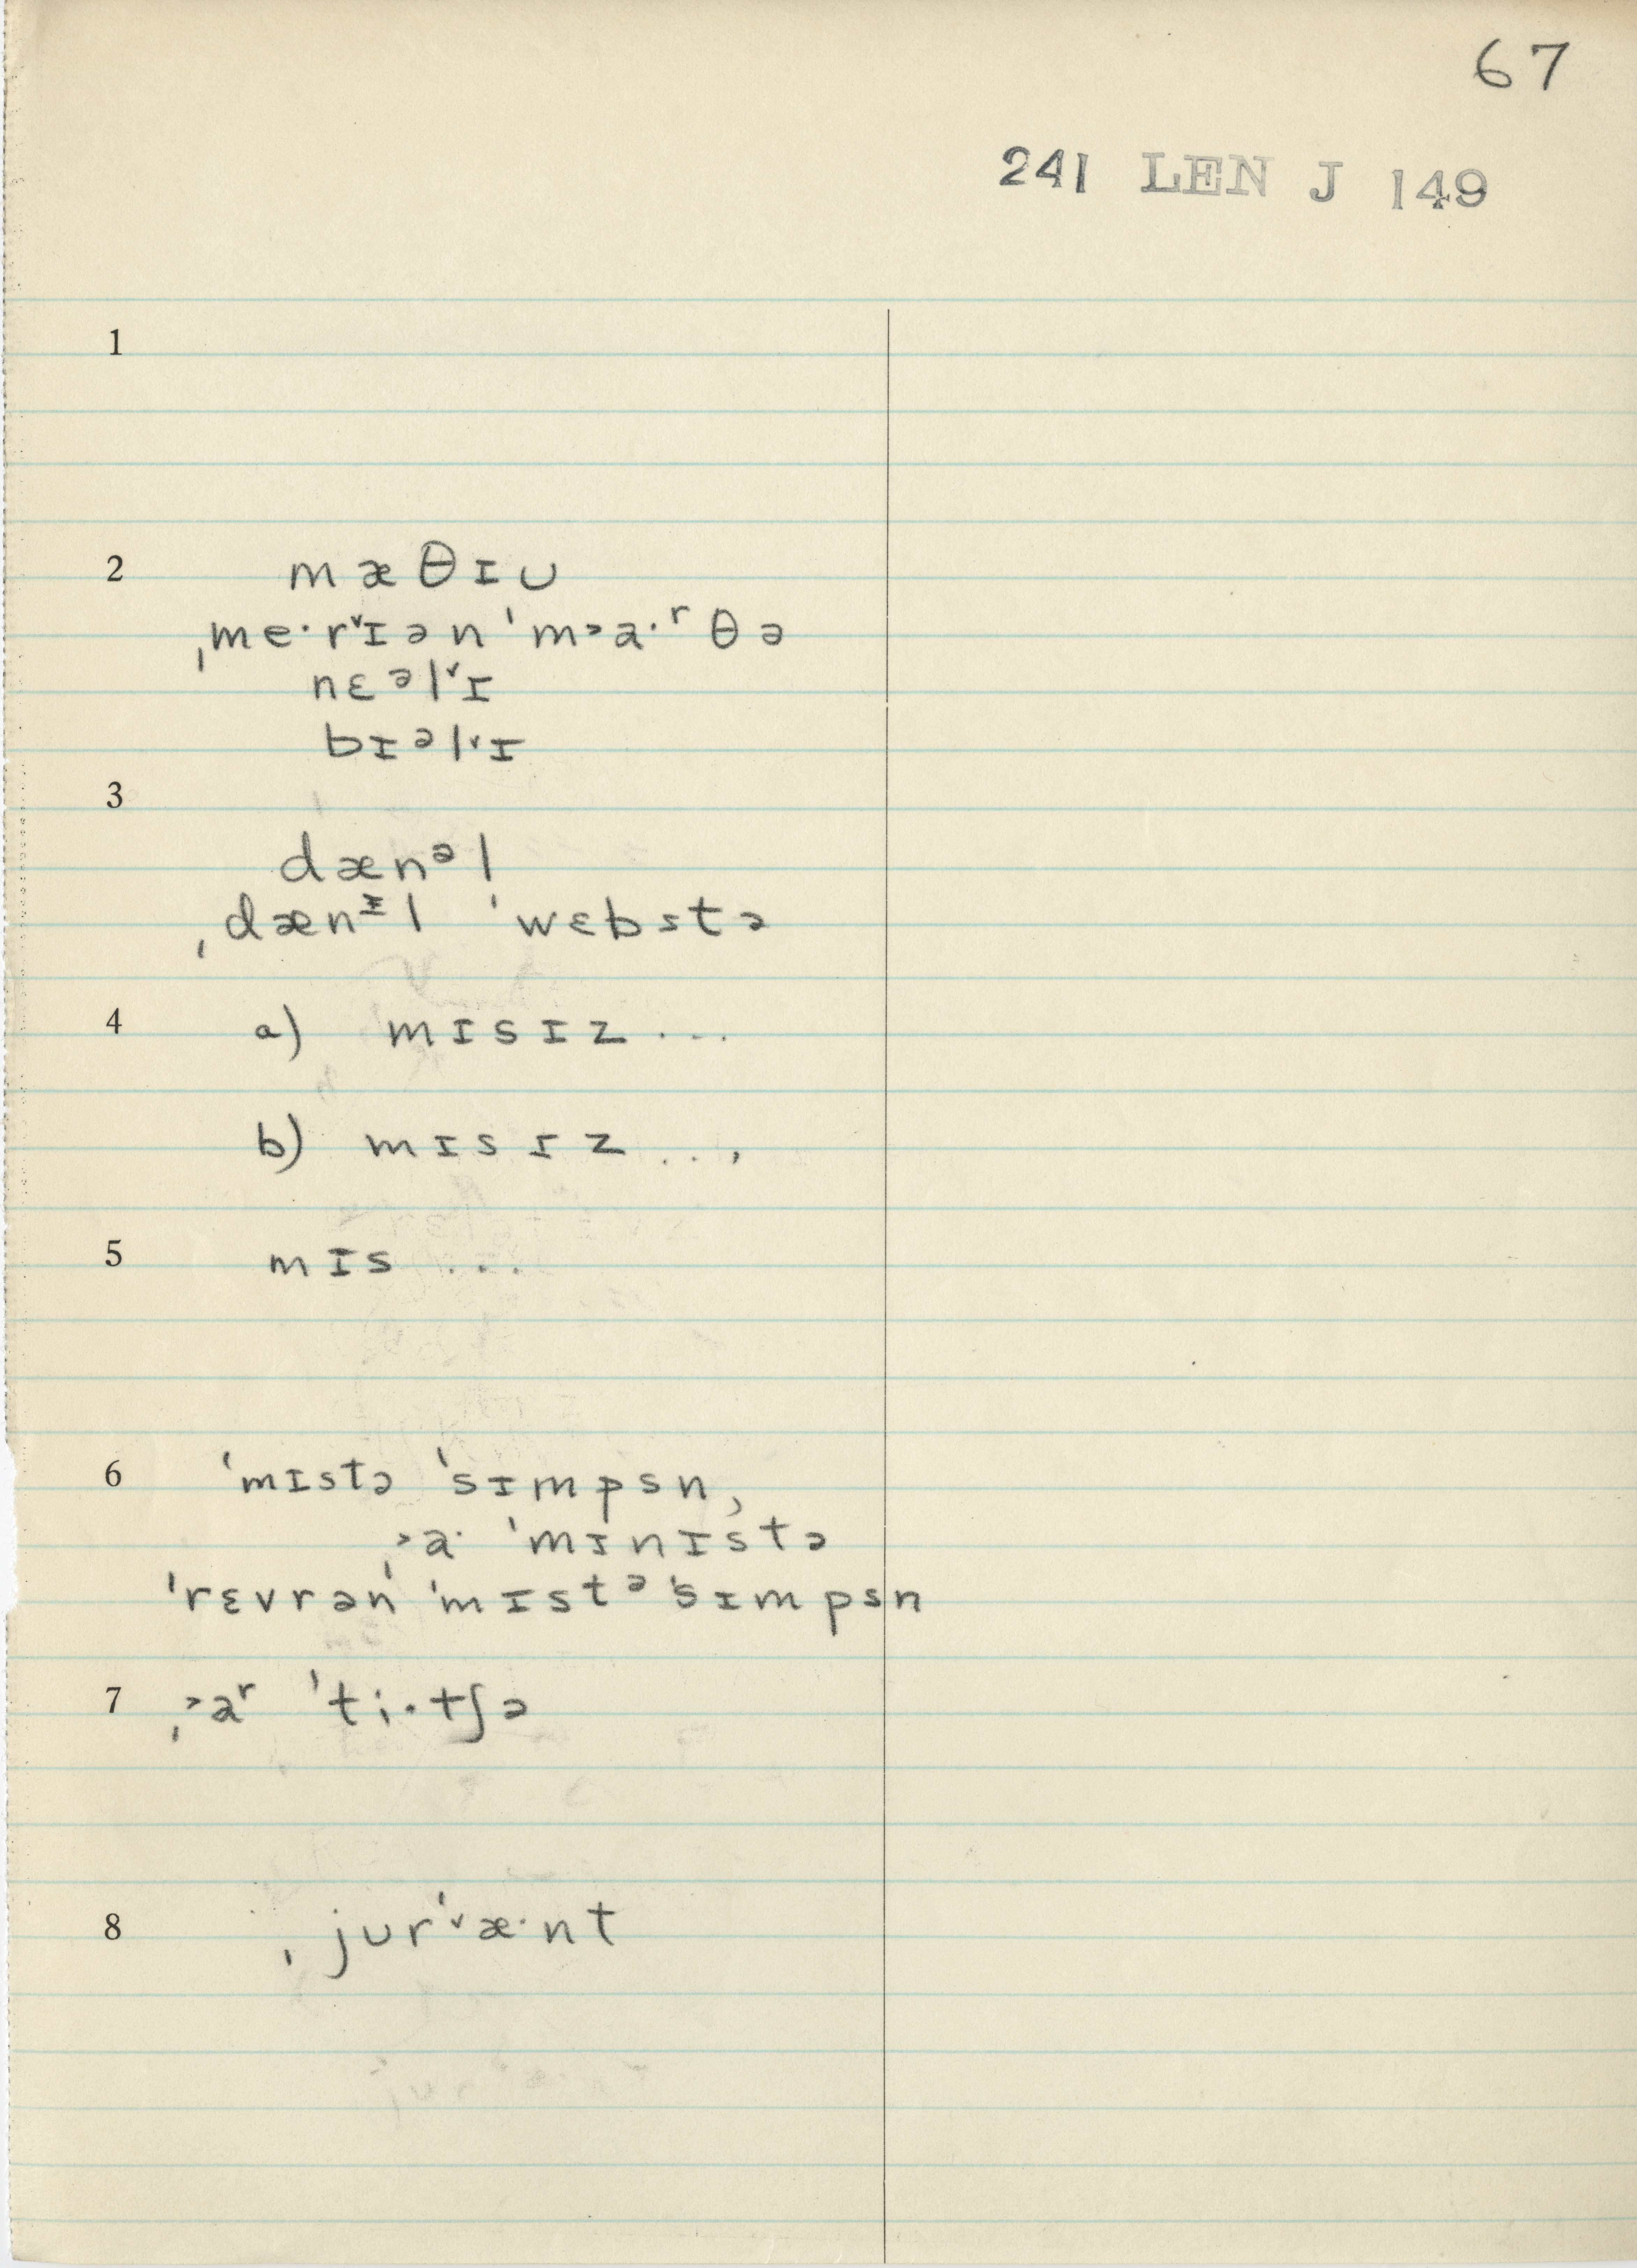 67
241 LEN J 149
1
2 mæθɪᴜ
ˌme·r˅ɪən ˈm˃a·ʳθə
nɛᵊl˅ɪ
bɪᵊl˅ɪ
3
dænᵊl
ˌdænᵻl ˈwɛbstə
4 a) mɪsɪz ...
b) mɪsɪz ...
5 mɪs ...
6 ˈmɪstə ˈsɪmpsn,
ˌ˃a· ˈmɪnɪstə
ˈrɛvrən ˈmɪstᵊ ˈsɪmpsn
7 ˌ˃aʳ ˈti·tʃə
8 ˌjᴜrˈ˅æ·nt